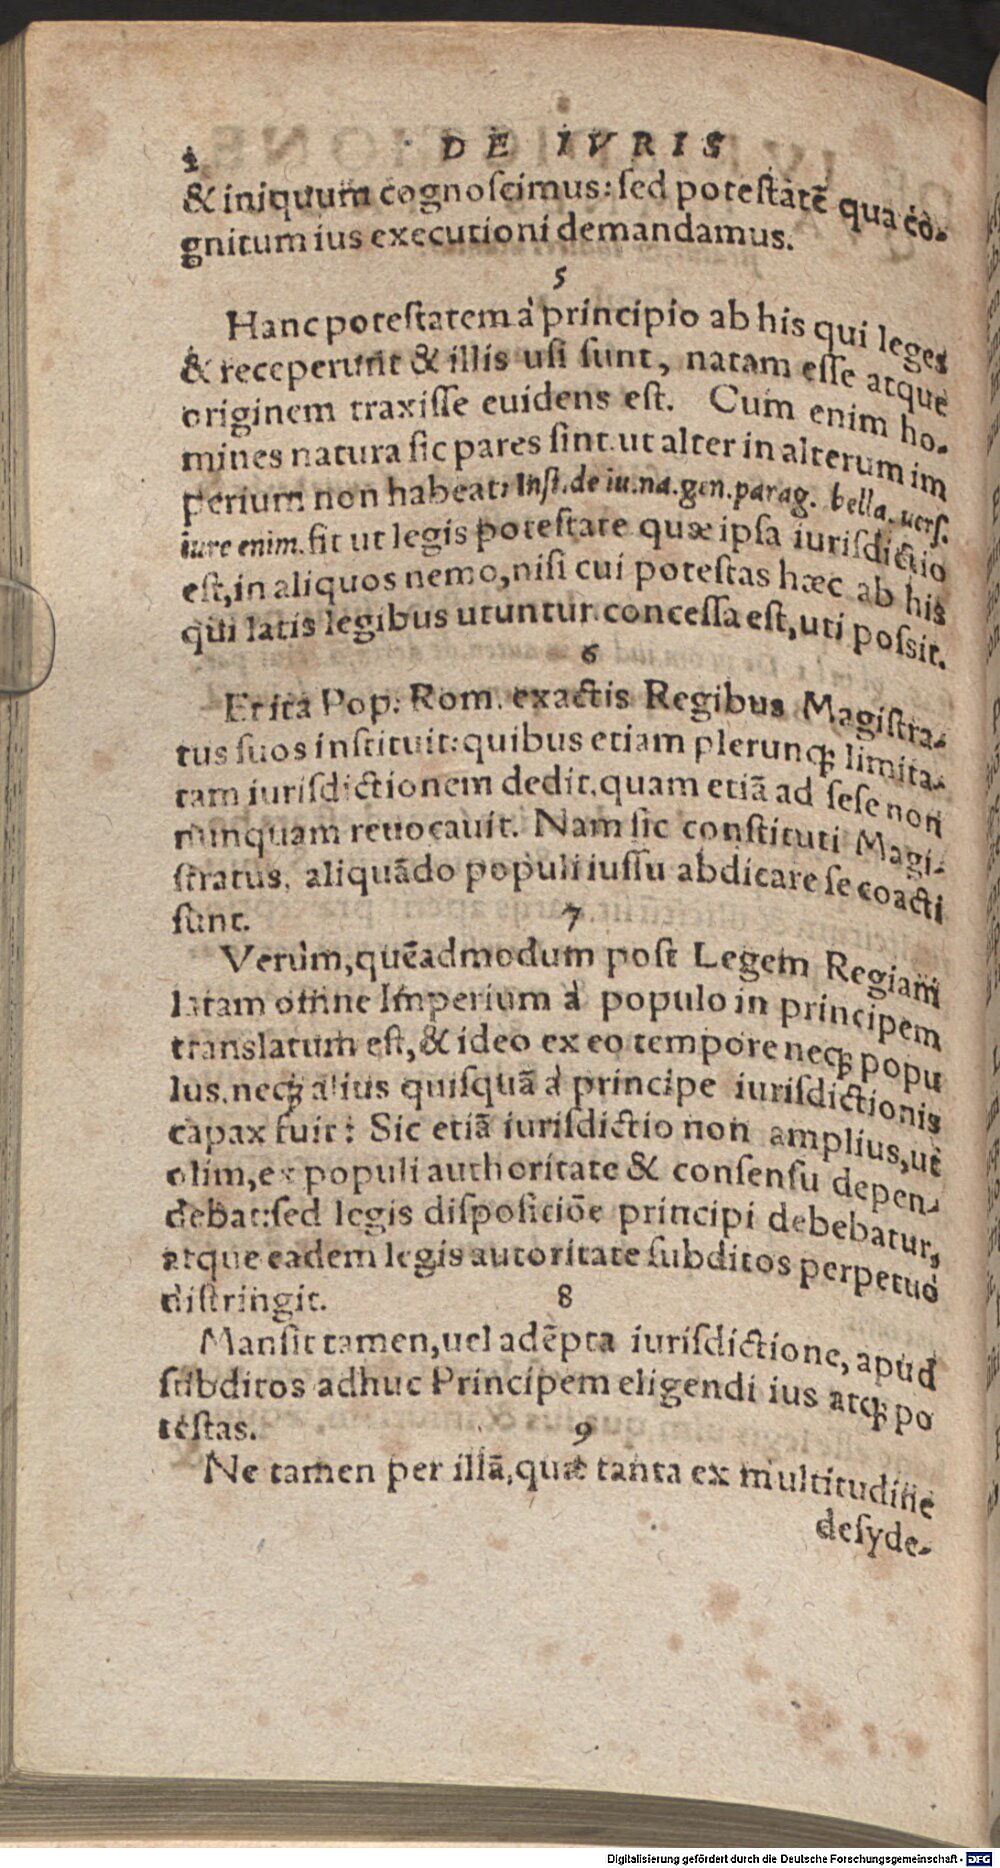 2 DE IVRIS
& iniquum cognoscimus: sed potestatē qua cò-
gnitum ius executioni demandamus.
5
Hanc potestatem à principio ab his qui leges
& receperunt & illis usi sunt, natam esse atque
originem traxisse euidens est. Cum enim ho-
mines natura sic pares sint ut alter in alterum im
perium non habeat: Inst. de iu. na. gen. parag. bella. uers.
iure enim. fit ut legis potestate quæ ipsa iurisdictio
est, in aliquos nemo, nisi cui potestas hæc ab his
qui latis legibus utuntur concessa est, uti possit.
6
Et ita Pop. Rom. exactis Regibus Magistra-
tus suos instituit: quibus etiam plerunq; limita-
tam iurisdictionem dedit, quam etiā ad sese non
nunquam reuocauit. Nam sic constituti Magi-
stratus, aliquādo populi iussu abdicare se coacti
sunt.
7
Verùm, quēadmodum post Legem Regiam
latam omne Imperium à populo in principem
translatum est, & ideo ex eo tempore neq; popu
lus, neq; alius quisquā à principe iurisdictionis
capax fuit: Sic etiā iurisdictio non amplius, ut
olim, ex populi authoritate & consensu depen-
debat: sed legis dispositiōe principi debebatur,
atque eadem legis autoritate subditos perpetuò
distringit.
8
Mansit tamen, uel adēpta iurisdictione, apud
subditos adhuc Principem eligendi ius atq; po
testas.
9
Ne tamen per illā, quæ tanta ex multitudine
desyde-
Digitalisierung gefördert durch die Deutsche Forschungsgemeinschaft - DFG